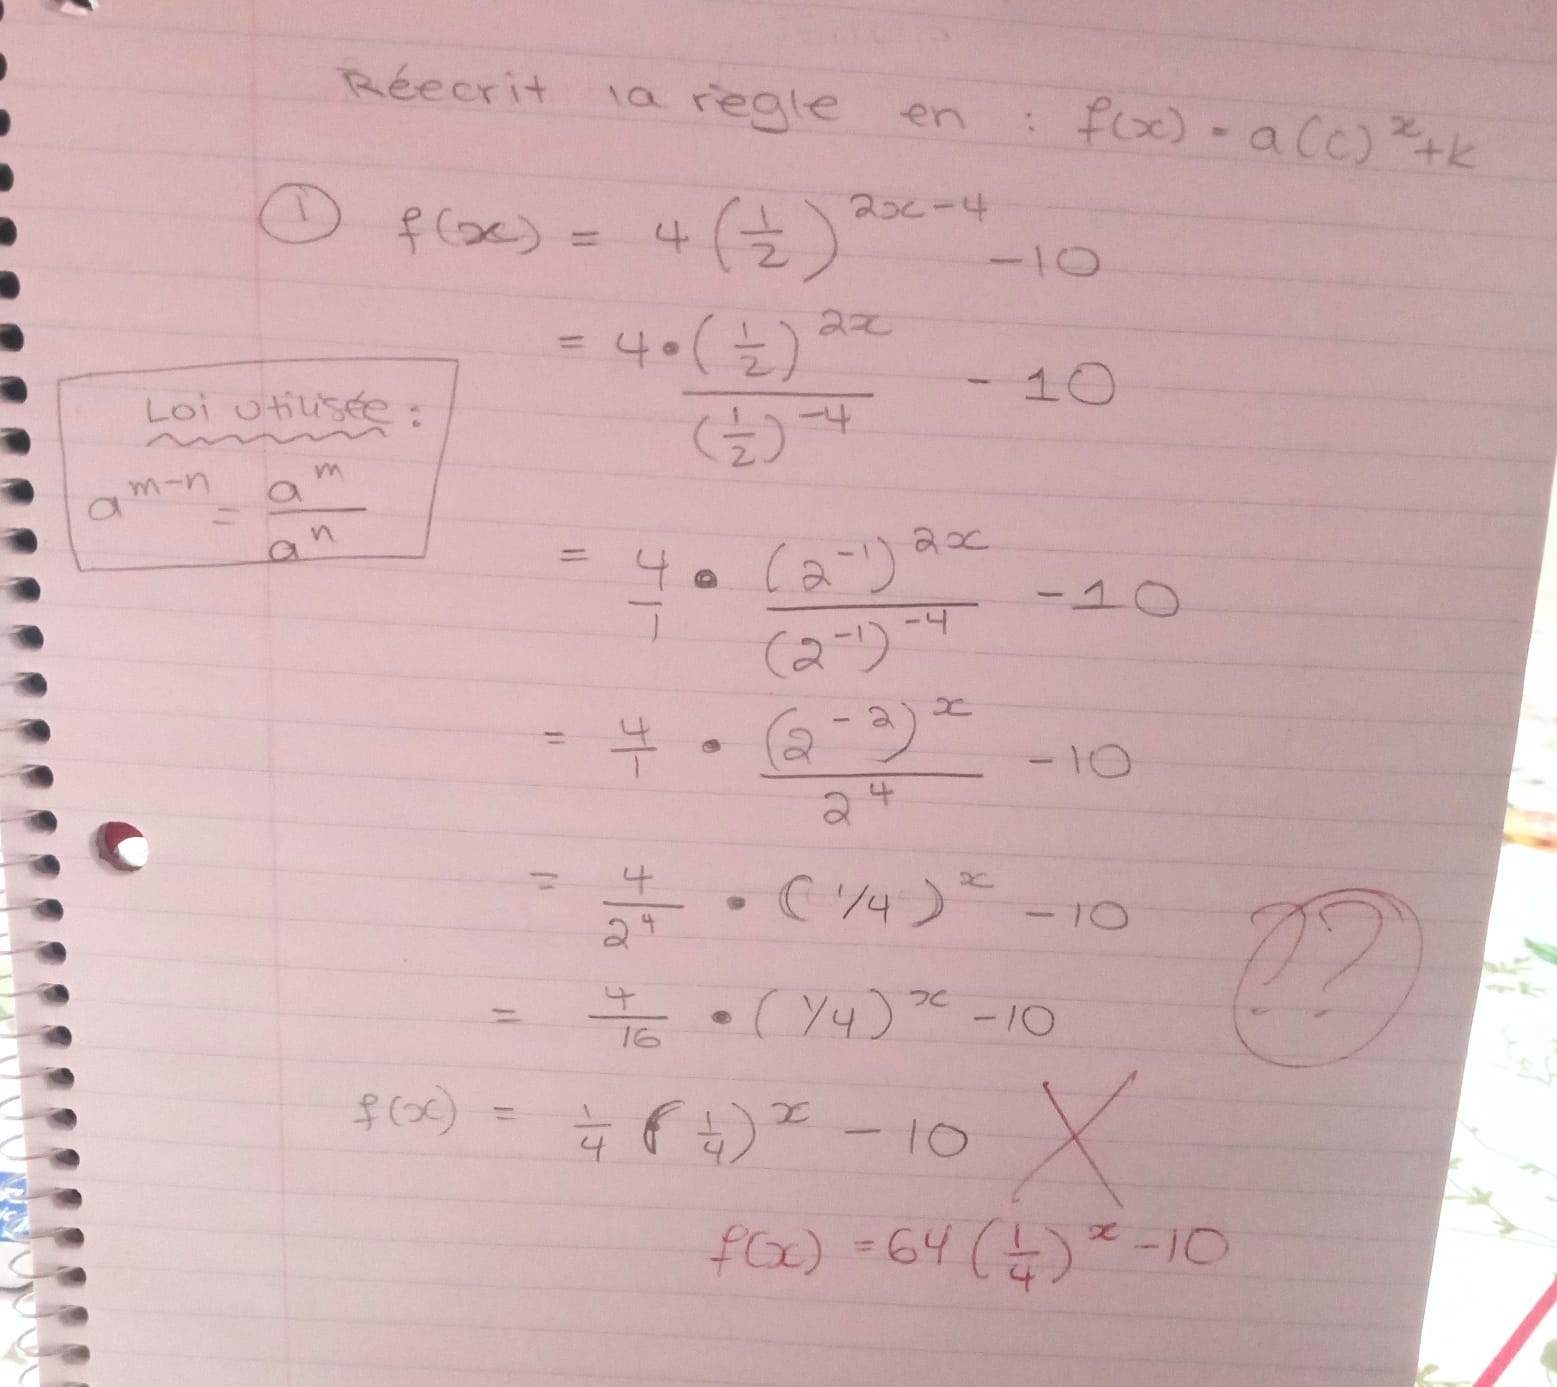 Réecrit la règle en : f(x) = a(c)^x + k
① f(x) = 4(1/2)^(2x-4) - 10
= 4•(1/2)^(2x) / (1/2)^(-4) - 10
Loi utilisée :
a^(m-n) = a^m / a^n
= 4/1 • (2^(-1))^(2x) / (2^(-1))^(-4) - 10
= 4/1 • (2^(-2))^x / 2^4 - 10
= 4/2^4 • (1/4)^x - 10
??
= 4/16 • (1/4)^x - 10
f(x) = 1/4 (1/4)^x - 10 X
f(x) = 64(1/4)^x - 10